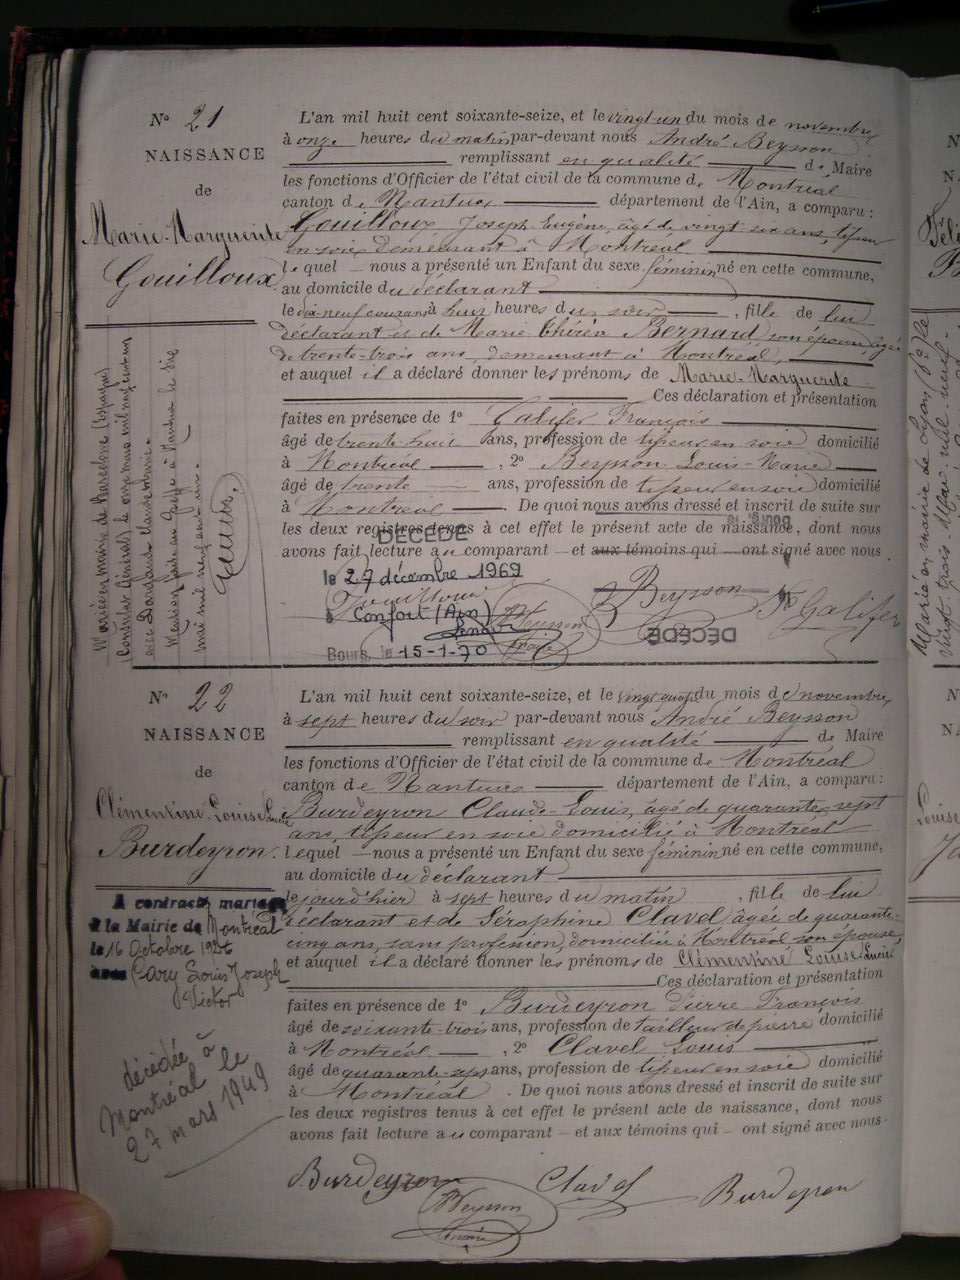 N° 21
NAISSANCE
de
Marie-Marguerite
Gouilloux
Mariée en mairie de Barcelone (Espagne)
Consulat Général, le onze mai mil neuf cent un
avec
Mention faite au Greffe à Nantua le dix
mai mil neuf cent un.
L'an mil huit cent soixante-seize, et le vingt un du mois de novembre
à onze heures du matin par-devant nous André Beysson
remplissant en qualité de Maire
les fonctions d'Officier de l'état civil de la commune de Montréal
canton de Nantua département de l'Ain, a comparu :
Gouilloux Joseph Eugène, âgé de vingt-six ans, tisseur
en soie, demeurant à Montréal
lequel nous a présenté un Enfant du sexe féminin né en cette commune,
au domicile du déclarant
le dix-neuf courant à huit heures du soir, fille de lui
déclarant et de Marie Bernard, son épouse, âgée
de trente-trois ans, demeurant à Montréal,
et auquel il a déclaré donner les prénoms de Marie-Marguerite
Ces déclaration et présentation
faites en présence de 1° Galifer François
âgé de trente-huit ans, profession de tisseur en soie domicilié
à Montréal, 2° Beysson Louis-Marie
âgé de trente ans, profession de tisseur en soie domicilié
à Montréal. De quoi nous avons dressé et inscrit de suite sur
les deux registres tenus à cet effet le présent acte de naissance, dont nous
avons fait lecture au comparant et aux témoins qui ont signé avec nous
DÉCÉDÉ
le 27 décembre 1969
à Confort (Ain)
Bourg, le 15-1-70
Gouilloux
Beysson
Maire
Beysson
Fs Galifer
DÉCÉDÉ
N° 22
NAISSANCE
de
Clémentine-Louise-Lucie
Burdeyron.
A contracté mariage
à la Mairie de Montréal
le 16 Octobre 1926
avec Cary Louis Joseph
Victor
décédée à
Montréal le
27 mars 1949
L'an mil huit cent soixante-seize, et le vingt du mois de novembre,
à sept heures du soir par-devant nous André Beysson
remplissant en qualité de Maire
les fonctions d'Officier de l'état civil de la commune de Montréal
canton de Nantua département de l'Ain, a comparu :
Burdeyron Claude-Louis, âgé de quarante-sept
ans, tisseur en soie domicilié à Montréal
lequel nous a présenté un Enfant du sexe féminin né en cette commune,
au domicile du déclarant
le jourd'hier à sept heures du matin, fille de lui
déclarant et de Séraphine Clavel âgée de quarante-
cinq ans, sans profession, domiciliée à Montréal son épouse,
et auquel il a déclaré donner les prénoms de Clémentine Louise Lucie
Ces déclaration et présentation
faites en présence de 1° Burdeyron Pierre François
âgé de soixante-trois ans, profession de tailleur de pierre domicilié
à Montréal, 2° Clavel Louis
âgé de quarante-sept ans, profession de tisseur en soie domicilié
à Montréal. De quoi nous avons dressé et inscrit de suite sur
les deux registres tenus à cet effet le présent acte de naissance, dont nous
avons fait lecture au comparant et aux témoins qui ont signé avec nous.
Burdeyron
Beysson
Maire
Clavel
Burdeyron